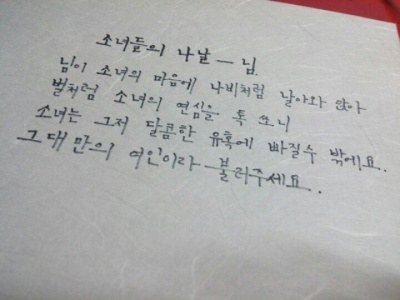 소녀들의 나날 — 님
님이 소녀의 마음에 나비처럼 날아와 앉아
벌처럼 소녀의 연심을 톡 쏘니
소녀는 그저 달콤한 유혹에 빠질수 밖에요.
그대만의 여인이라 불러주세요.